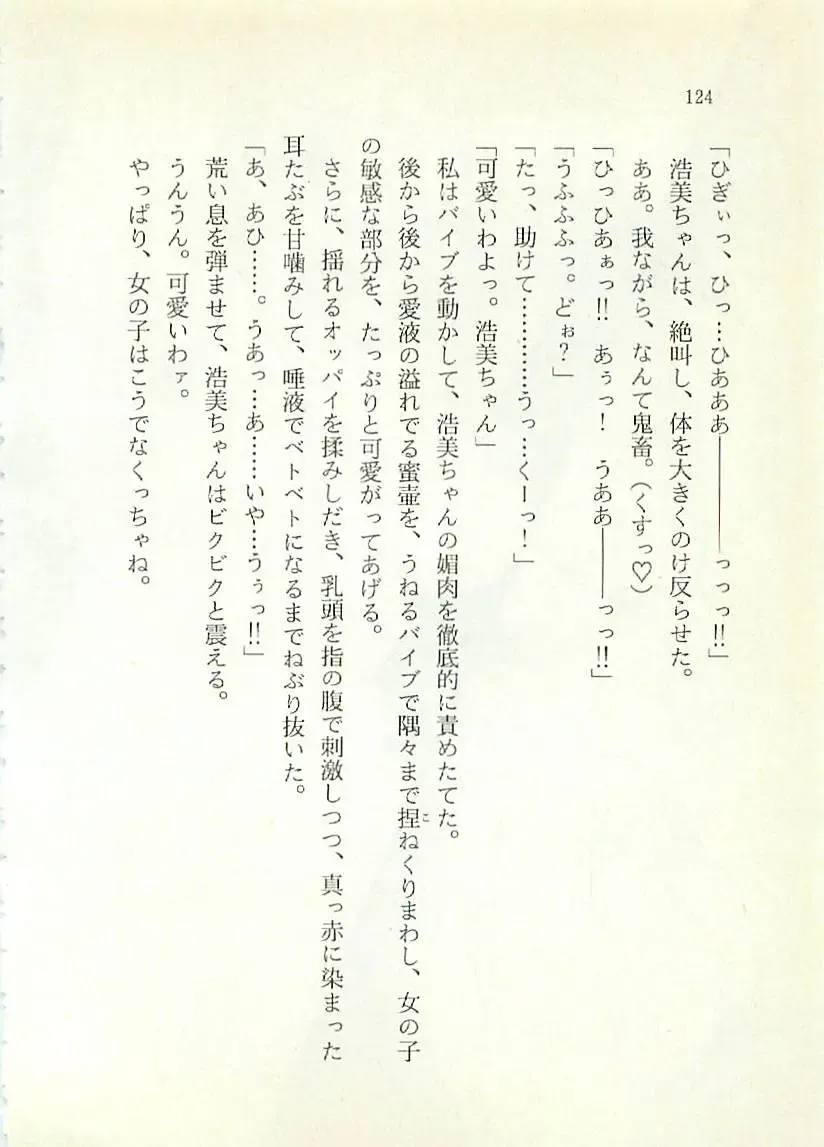 124
「ひぎぃっ、ひっ…ひあああ――――っっっ!!」
浩美ちゃんは、絶叫し、体を大きくのけ反らせた。
ああ。我ながら、なんて鬼畜。(くすっ♡)
「ひっひあぁっ!! あぅっ! うああ――っっ!!」
「うふふふっ。どぉ?」
「たっ、助けて…………うっ…くーっ!」
「可愛いわよっ。浩美ちゃん」
私はバイブを動かして、浩美ちゃんの媚肉を徹底的に責めたてた。
後から後から愛液の溢れでる蜜壷を、うねるバイブで隅々まで捏ねくりまわし、女の子
の敏感な部分を、たっぷりと可愛がってあげる。
さらに、揺れるオッパイを揉みしだき、乳頭を指の腹で刺激しつつ、真っ赤に染まった
耳たぶを甘噛みして、唾液でベトベトになるまでねぶり抜いた。
「あ、あひ……。うあっ…あ……いや…うぅっ!!」
荒い息を弾ませて、浩美ちゃんはビクビクと震える。
うんうん。可愛いわァ。
やっぱり、女の子はこうでなくっちゃね。